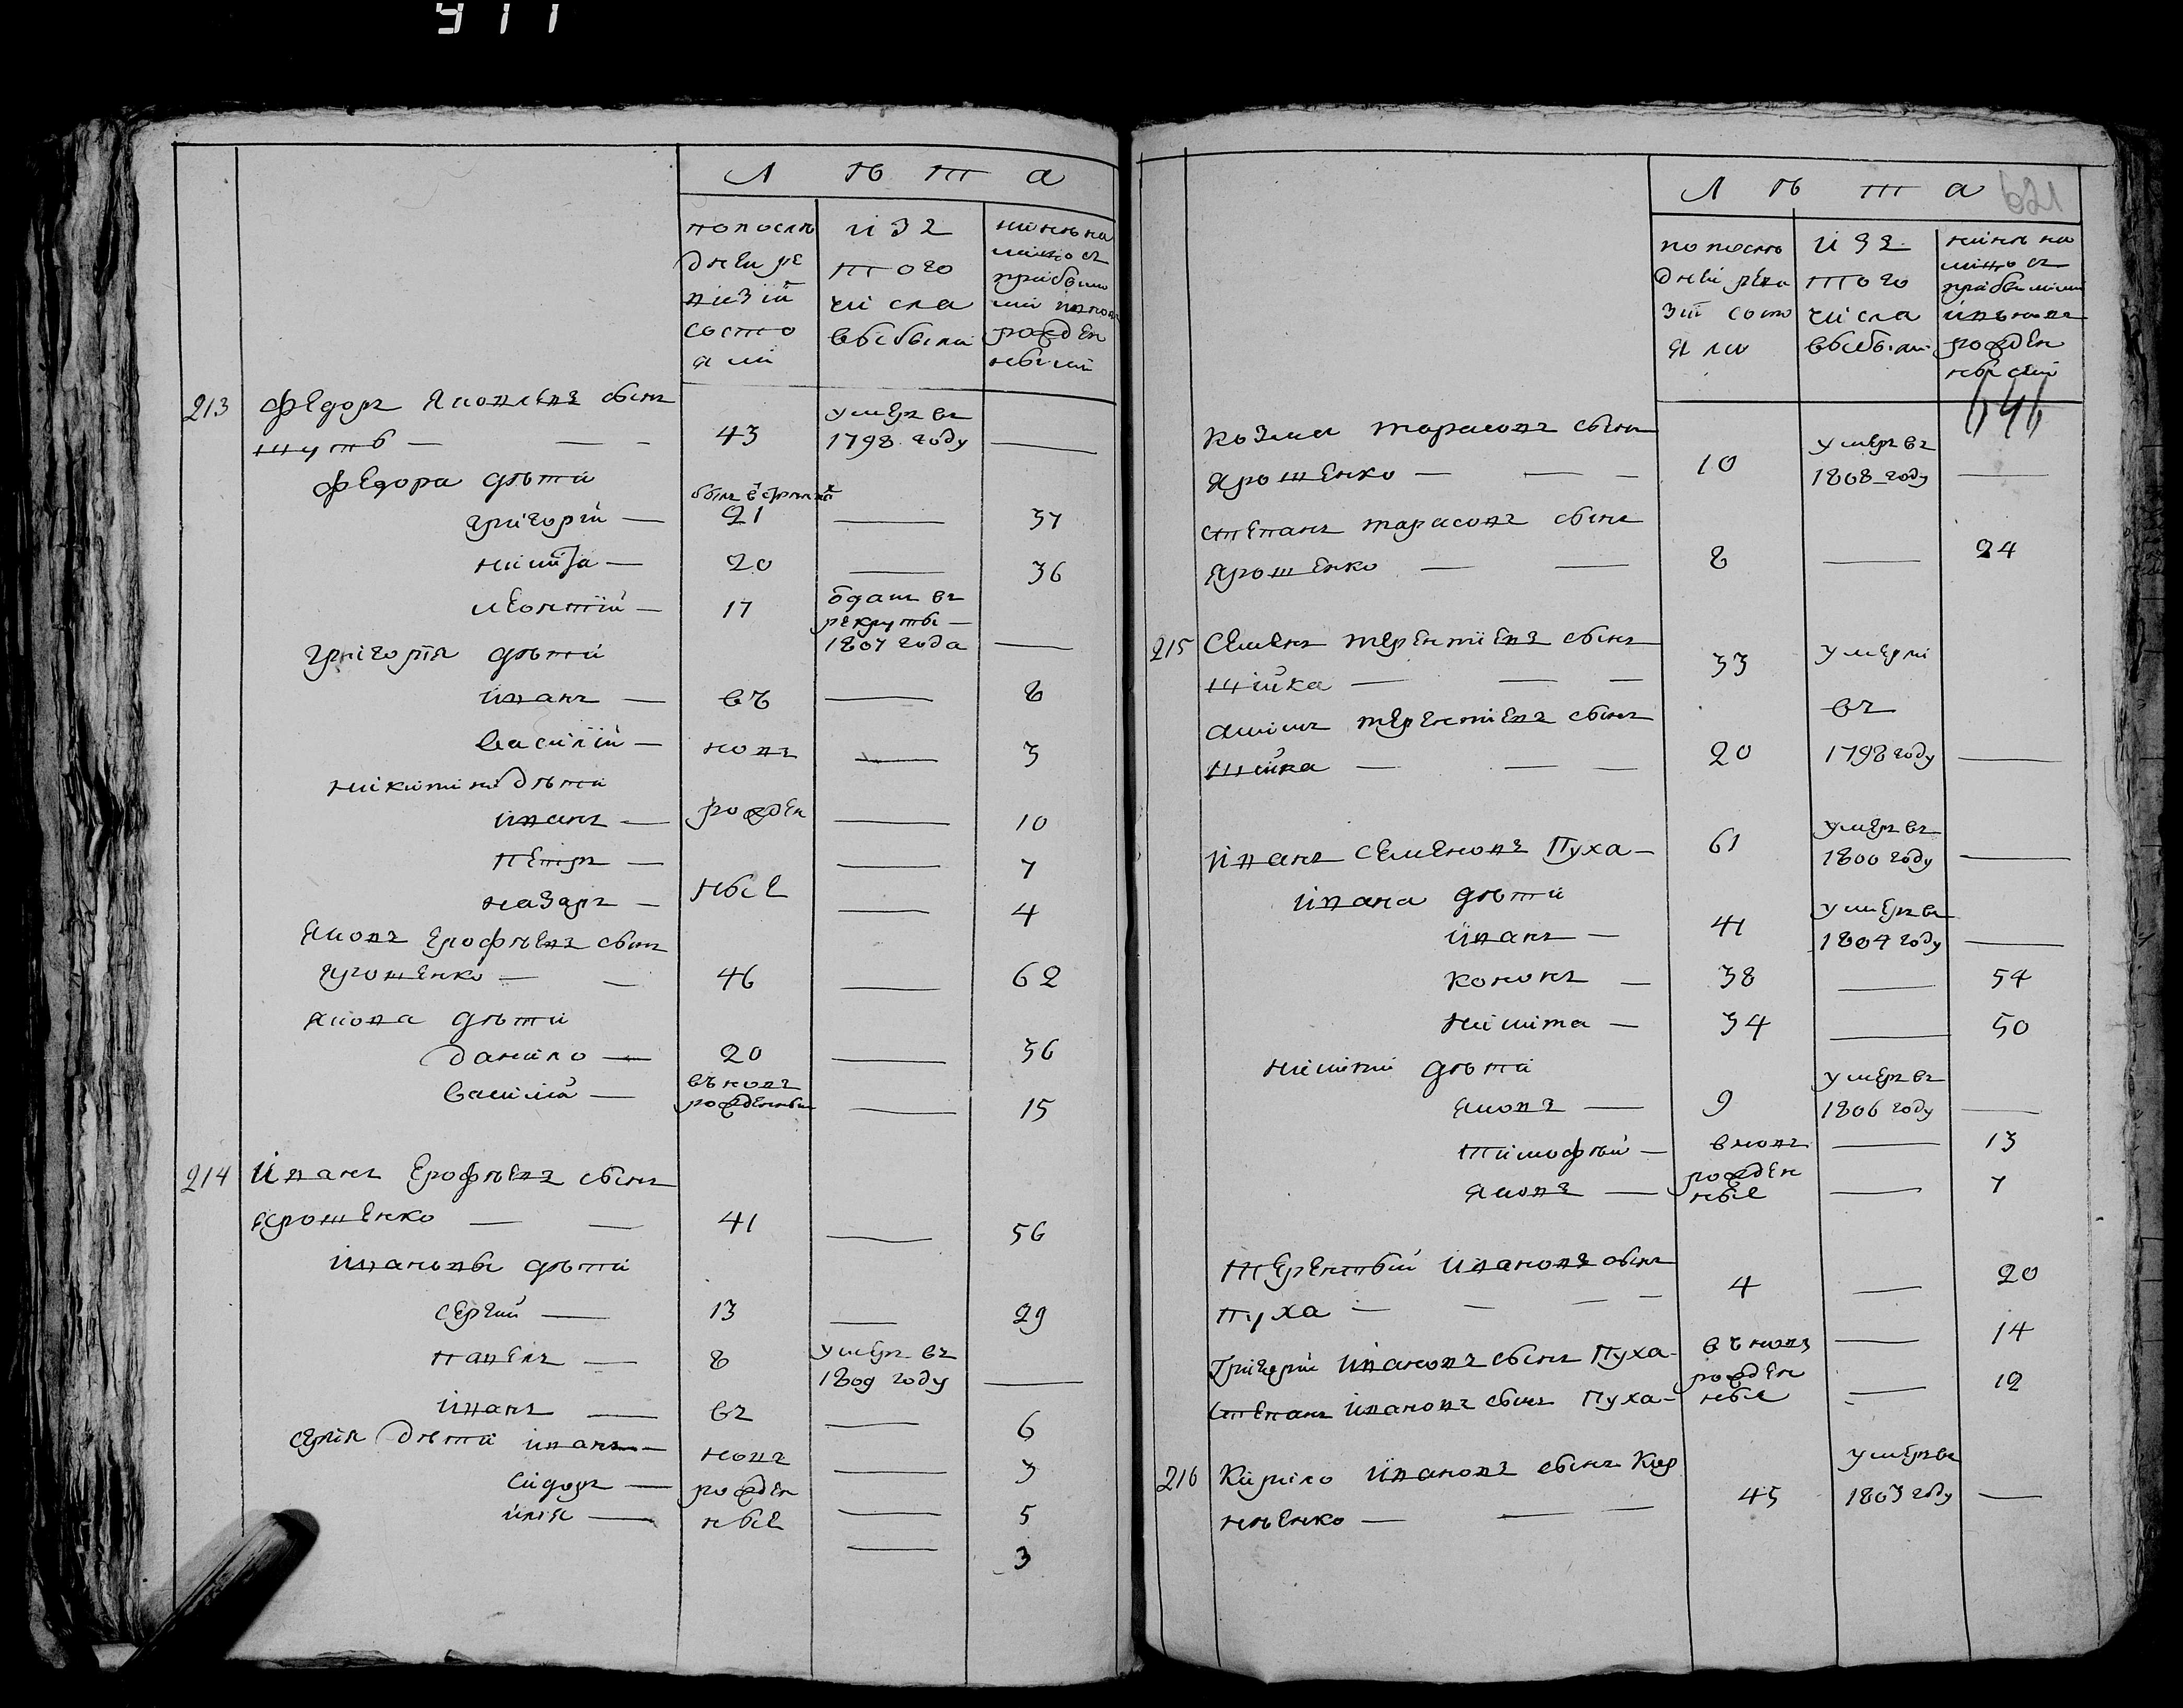 911
Л ѣ т а
попослѣ
дней ре
визіи
состо
яли
изъ
того
числа
выбыли
нынѣ на
лицо съ
прибылы
ми и внов
рожден
ными
213 Федоръ Яковлевъ сынъ
Шутъ — 43 умеръ въ 1798 году —
Федора дѣти
Григорій — 21 — 37
Никита — 20 — 36
Леонтій — 17 одатъ въ рекруты 1807 года —
Григорія дѣти
Иванъ — въ — 8
Василій — новъ — 3
Никитины дѣти
Иванъ — рожден — 10
Петръ — — 7
Назаръ — ные — 4
Яковъ Ерофѣевъ сынъ
Ярошенко — 46 — 62
Якова дѣти
Данило — 20 — 36
Василій — въ новъ рожденный — 15
214 Иванъ Ерофѣевъ сынъ
Ярошенко — 41 — 56
Ивановы дѣти
Сергій — 13 — 29
Павелъ — 8 умеръ въ 1809 году —
Иванъ — въ — 6
Сергія дѣти Иванъ — новъ — 3
Сидоръ — рожден — 5
Илія — ные — 3
Л ѣ т а 621
попослѣ
дней реви
зіи состо
яли
изъ
того
числа
выбыли
нынѣ на
лицо съ
прибылыми
и вновь
рожден
ными
646
Козма Тарасовъ сынъ
Ярошенко — 10 умеръ въ 1808 году —
Степанъ Тарасовъ сынъ
Ярошенко — 8 — 24
215 Семенъ Терентіевъ сынъ
Шійка — 33 умерли
Якимъ Терентіевъ сынъ въ
Шійка — 20 1798 году —
Иванъ Семеновъ Пуха — 61 умеръ въ 1800 году —
Ивана дѣти
Иванъ — 41 умеръ въ 1804 году —
Кононъ — 38 — 54
Никита — 34 — 50
Никиты дѣти
Яковъ — 9 умеръ въ 1806 году —
Тимофѣй — вновъ — 13
Яковъ — рожден ные — 7
Терентьій Ивановъ сынъ
Пуха — 4 — 20
Григорій Ивановъ сынъ Пуха — въ новъ — 14
Степанъ Ивановъ сынъ Пуха — рожден ные — 12
216 Кирило Ивановъ сынъ Кор
нѣенко — 45 умеръ въ 1803 году —